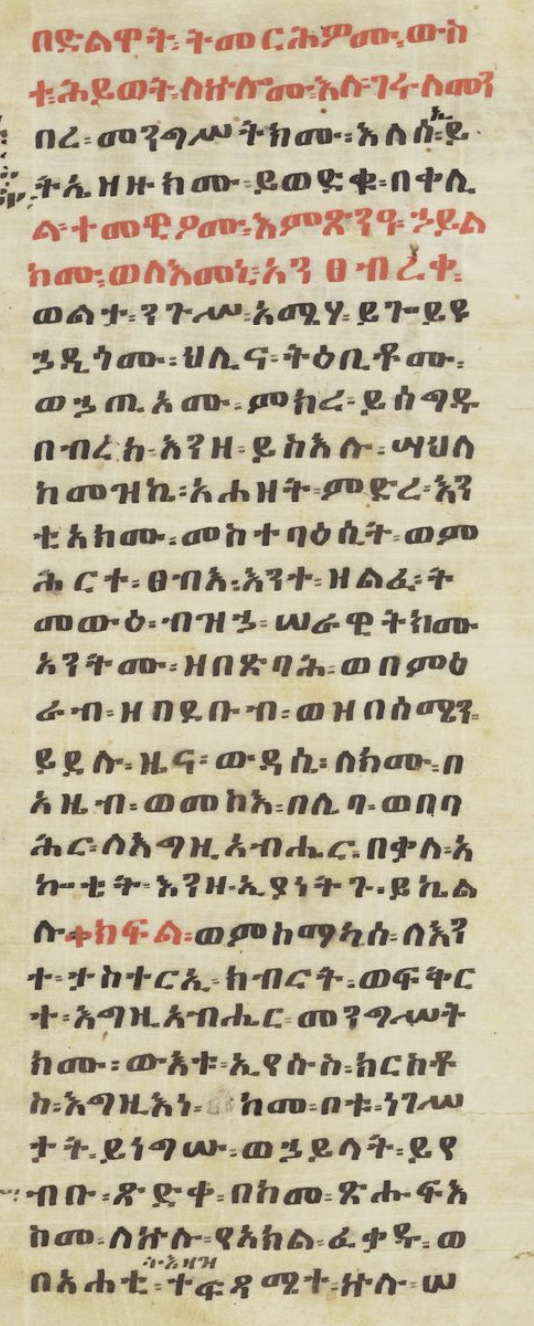 በድልዋት፡ ትመርሕዎሙ፡ ውስ
ተ፡ ሕይወት፡ ለኵሎሙ፡ እለ፡ ገሩ፡ ለመን
በረ፡ መንግሥትክሙ፡ እለ፡ ኢይ
ትኤዘዙ፡ ክሙ፡ ይወድቁ፡ በቀሊ
ል፡ ተመዊዖሙ፡ እምጽንዓ፡ ኃይል
ክሙ፡ ወለእመኒ፡ አንፀብረቀ፡
ወልታ፡ ንጉሥ፡ አሜሃ፡ ይጐይዩ
ኃዲጎሙ፡ ህሊና፡ ትዕቢቶሙ፡
ወኃጢአሙ፡ ምክረ፡ ይሰግዱ
በብረከ፡ እንዘ፡ ይስእሉ፡ ሣህለ
ከመዝኬ፡ አሐዘት፡ ምድረ፡ እን
ቲአክሙ፡ መስተባዕሲት፡ ወም
ሕርተ፡ ፀብእ፡ እንተ፡ ዘልፈ፡ ት
መውዕ፡ ብዝኃ፡ ሠራዊትክሙ
አንትሙ፡ ዘበጽባሕ፡ ወበምዕ
ራብ፡ ዘበደቡብ፡ ወዝበሰሜን፡
ይደሉ፡ ዜና፡ ውዳሴ፡ ለክሙ፡ በ
አዜብ፡ ወመከአ፡ በሊባ፡ ወበባ
ሕር፡ ለእግዚአብሔር፡ በቃለ፡ አ
ኰቴት፡ እንዘ፡ ኢያነትጉ፡ ይኬል
ሉ፡ ቀክፍል፡ ወምከማካሰ፡ ለእን
ተ፡ ታስተርኢ፡ ክብሮት፡ ወፍቅር
ተ፡ እግዚአብሔር፡ መንግሥት
ክሙ፡ ውእቱ፡ ኢየሱስ፡ ክርስቶ
ስ፡ እግዚእነ፡ ከመ፡ ቦቱ፡ ነገሥ
ታት፡ ይነግሡ፡ ወኃይላት፡ ይየ
ብቡ፡ ጽድቀ፡ በከመ፡ ጽሑፍ እ
ስመ፡ ለኵሉ፡ የአክል፡ ፈቃዱ፡ ወ
ትእዛዝ
በአሐቲ፡ ተፍዳሜተ፡ ኵሉ፡ ሠ